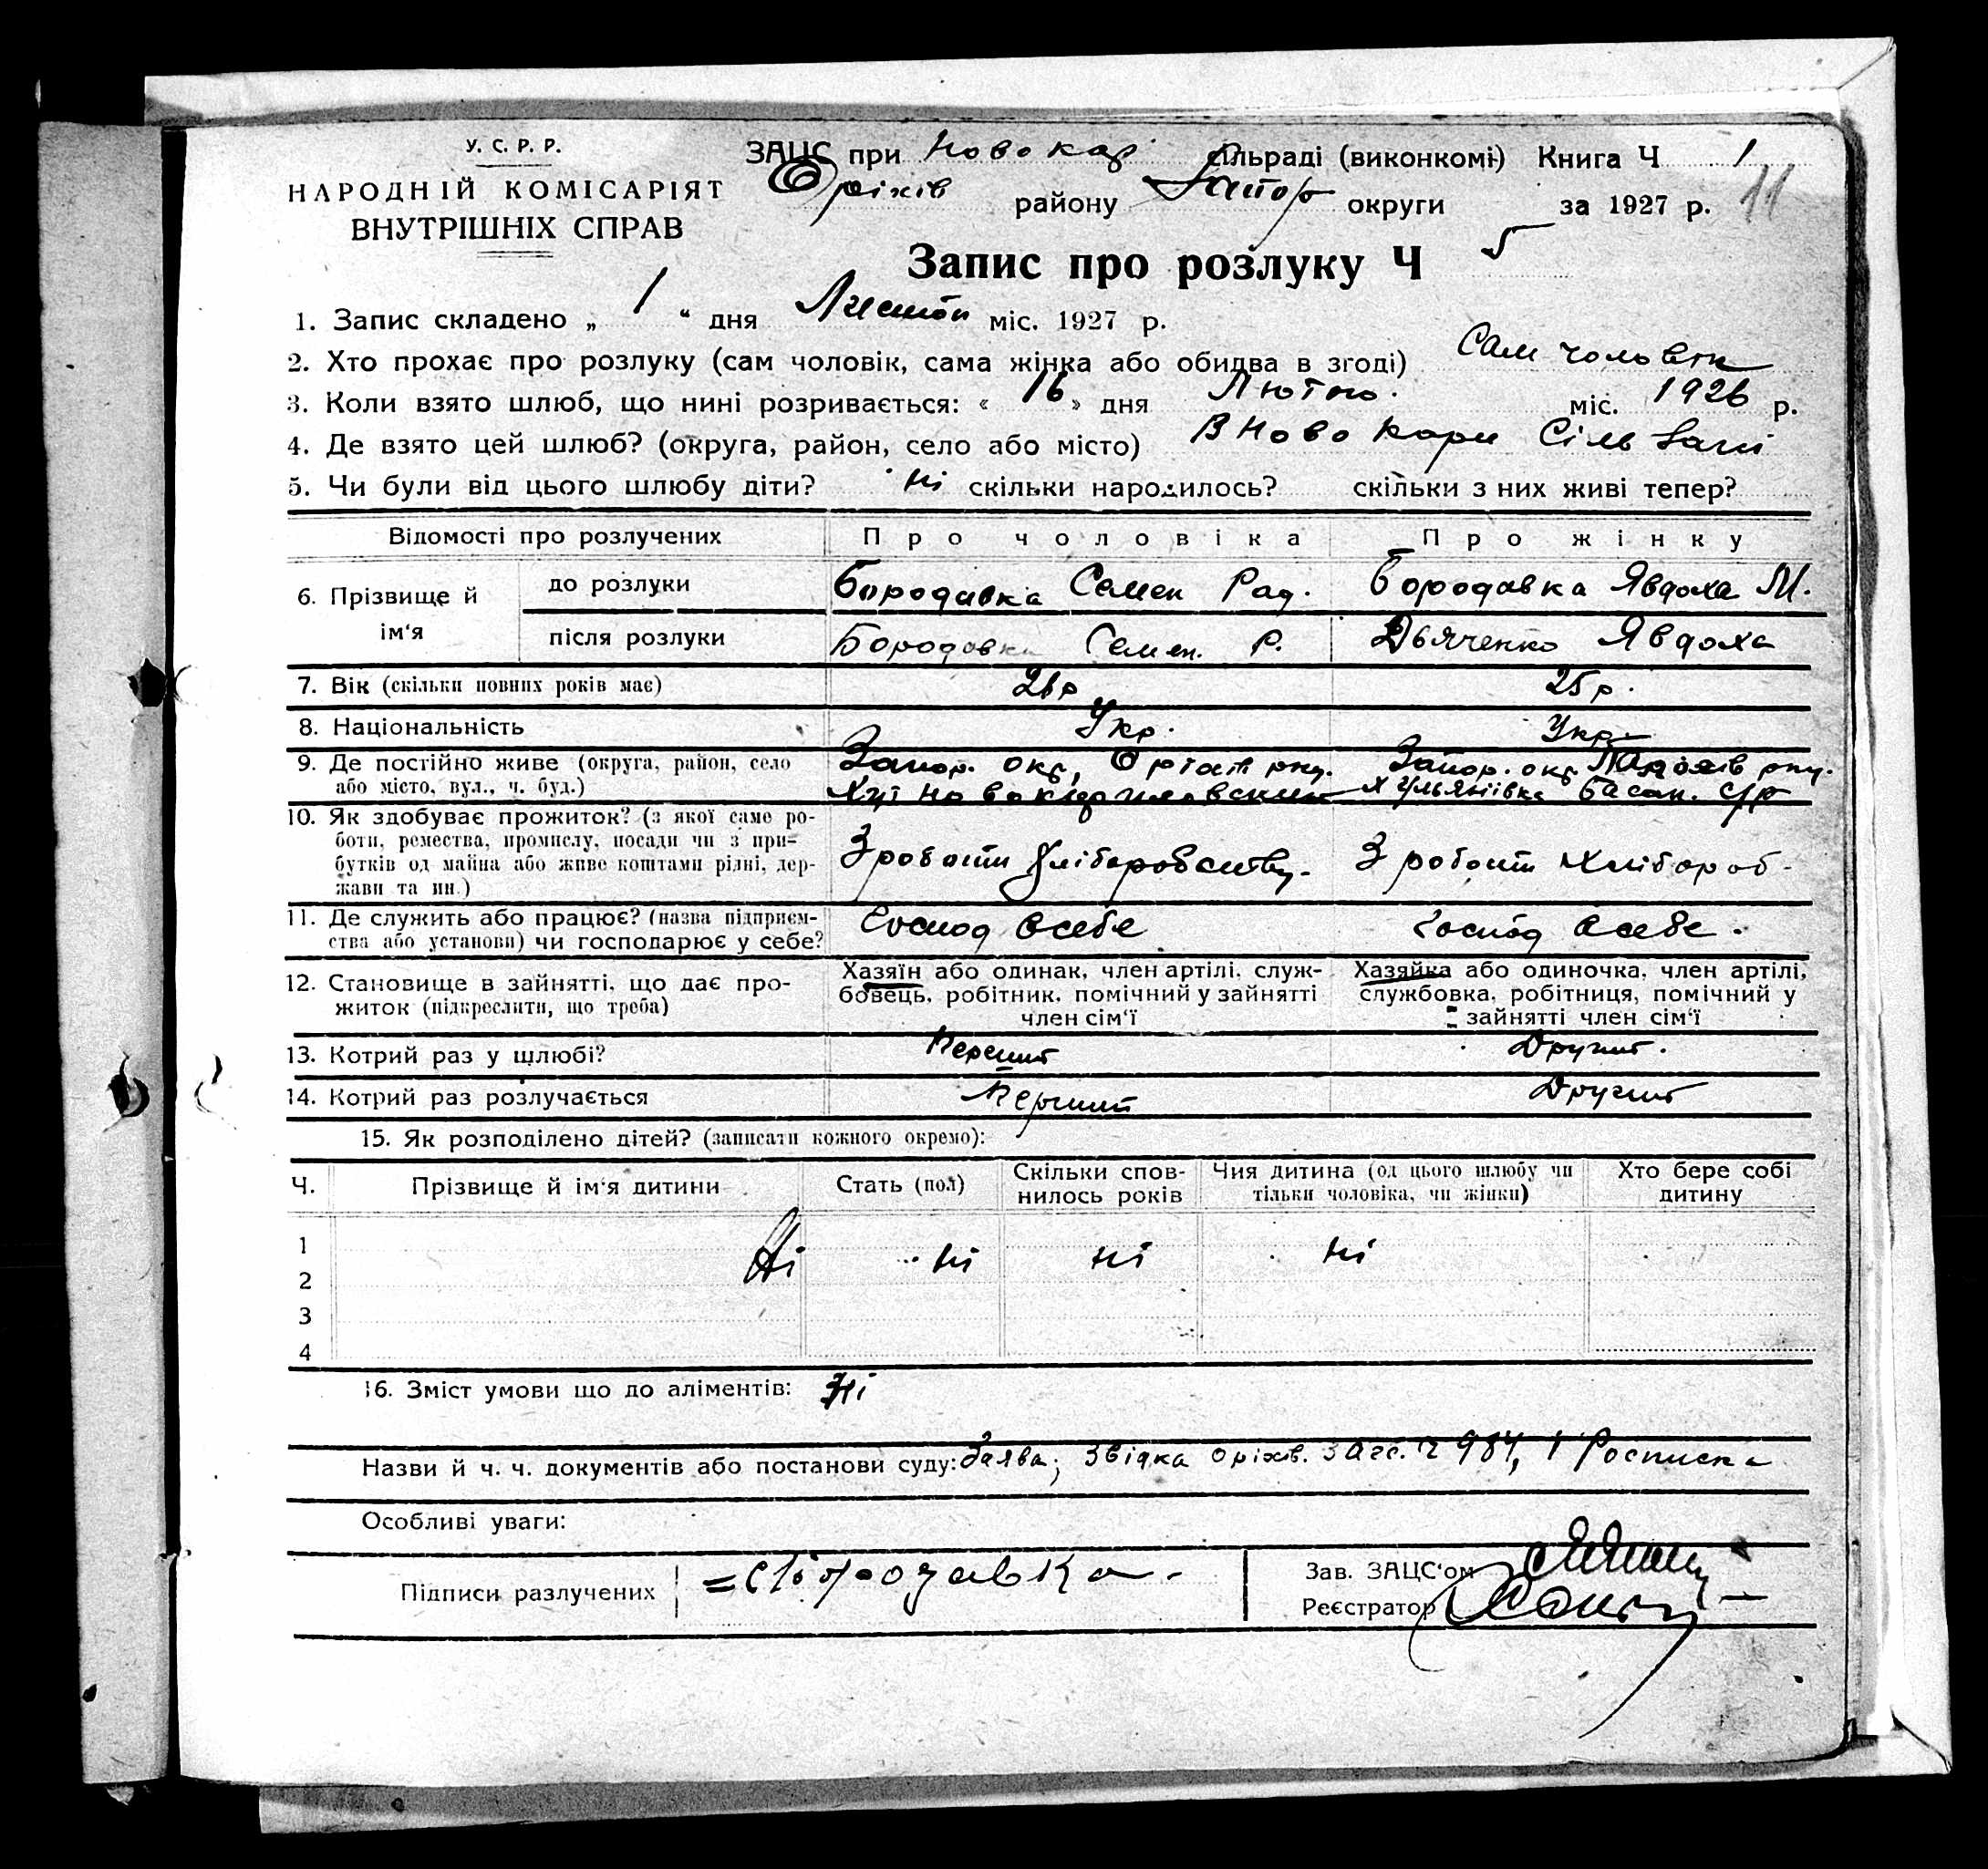 У. С. Р. Р.
НАРОДНІЙ КОМІСАРІЯТ
ВНУТРІШНІХ СПРАВ
ЗАЦС при Новокар сільраді (виконкомі) Книга Ч 1
Оріхів району Запор округи за 1927 р. 11
Запис про розлуку Ч 5
1. Запис складено „ 1 “ дня Листоп міс. 1927 р.
2. Хто прохає про розлуку (сам чоловік, сама жінка або обидва в згоді) Сам чоловік
3. Коли взято шлюб, що нині розривається: « 16 » дня Лютого. міс. 1926 р.
4. Де взято цей шлюб? (округа, район, село або місто) В Ново Кари Сіль
5. Чи були від цього шлюбу діти? Ні скільки народилось? скільки з них живі тепер?
Відомості про розлучених Про чоловіка Про жінку
6. Прізвище й ім‘я
до розлуки Бородавка Семен Рад. Бородавка Явдоха М.
після розлуки Бородавка Семен. Р. Дьяченко Явдоха
7. Вік (скільки повних років має) 25 р.
8. Національність Укр. Укр.
9. Де постійно живе (округа, район, село Запор. окр, Запор. окр.
або місто, вул., ч. буд.) Хут Х Ульянівка Басан. с/р
10. Як здобуває прожиток? (з якої саме ро-
боти, ремества, промислу, посади чи з при-
бутків од майна або живе коштами рідні, дер-
жави та ин.)
З роботи хліборобству. З роботи хлібороб.
11. Де служить або працює? (назва підприєм-
ства або установи) чи господарює у себе?
Господ в себе Господ в себе.
12. Становище в зайнятті, що дає про-
житок (підкреслити, що треба)
Хазяїн або одинак, член артілі, служ-
бовець, робітник, помічний у зайнятті
член сім‘ї
Хазяйка або одиночка, член артілі,
службовка, робітниця, помічний у
зайнятті член сім‘ї
13. Котрий раз у шлюбі? Перший Другий.
14. Котрий раз розлучається Перший Другий
15. Як розподілено дітей? (записати кожного окремо):
Ч. Прізвище й ім‘я дитини Стать (пол) Скільки спов-
нилось років Чия дитина (од цього шлюбу чи
тільки чоловіка, чи жінки) Хто бере собі
дитину
1 Ні ні ні ні
2
3
4
16. Зміст умови що до аліментів: Ні
Назви й ч. ч. документів або постанови суду: Заява; Звідка Оріхів. ЗАГС. Ч 984, і Росписка
Особливі уваги:
Підписи разлучених
Зав. ЗАЦС‘ом
Реєстратор